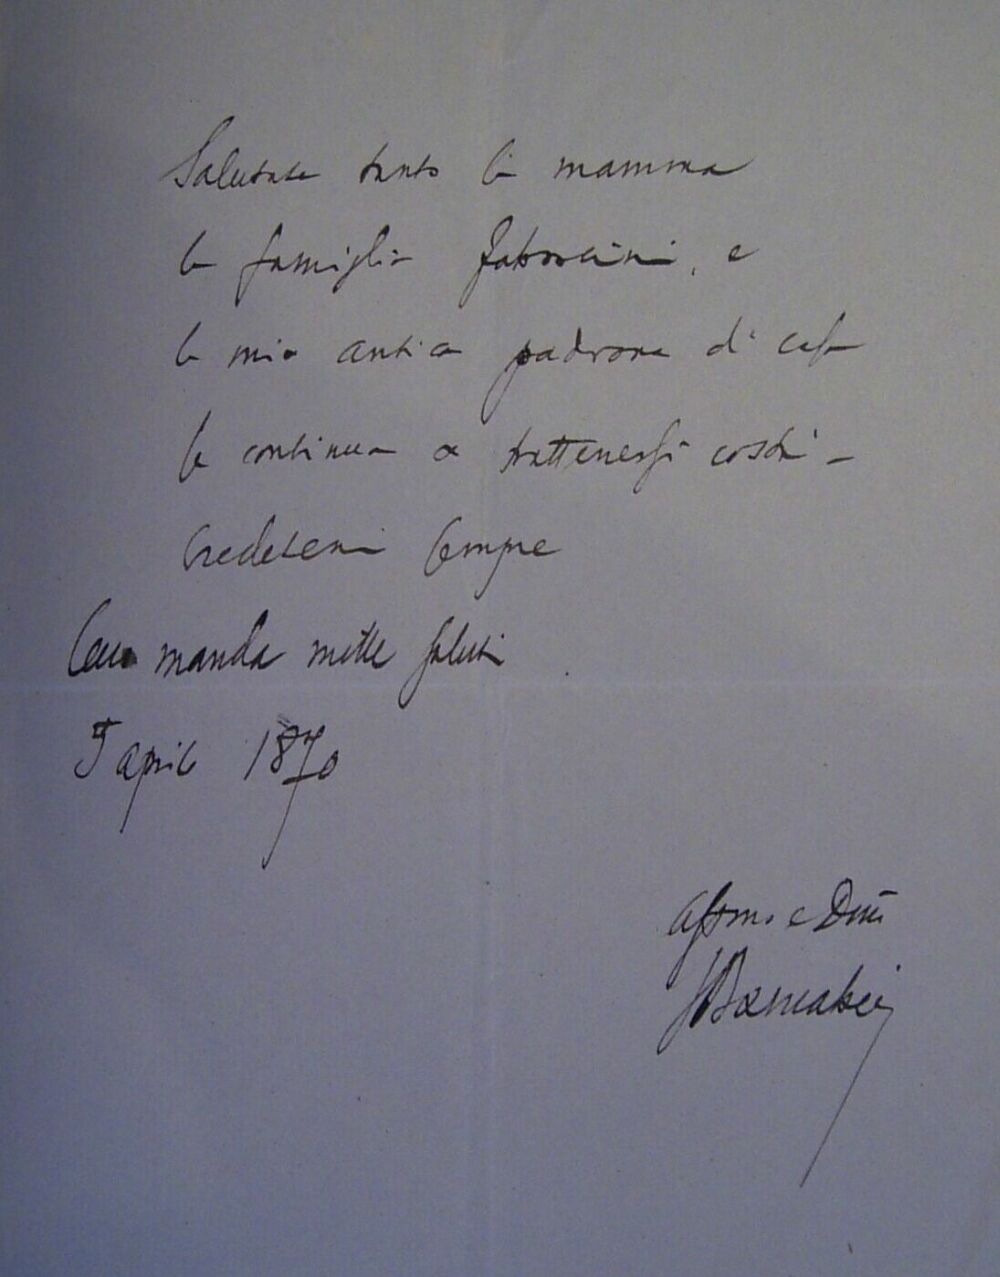 Salutate tanto la mamma
la famiglia Fabrocini, e
la mia antica padrona di casa
se continua a trattenersi costì –
Credetemi sempre
manda mille saluti
5 aprile 1870
Affmo e Dmo
FBarnabei